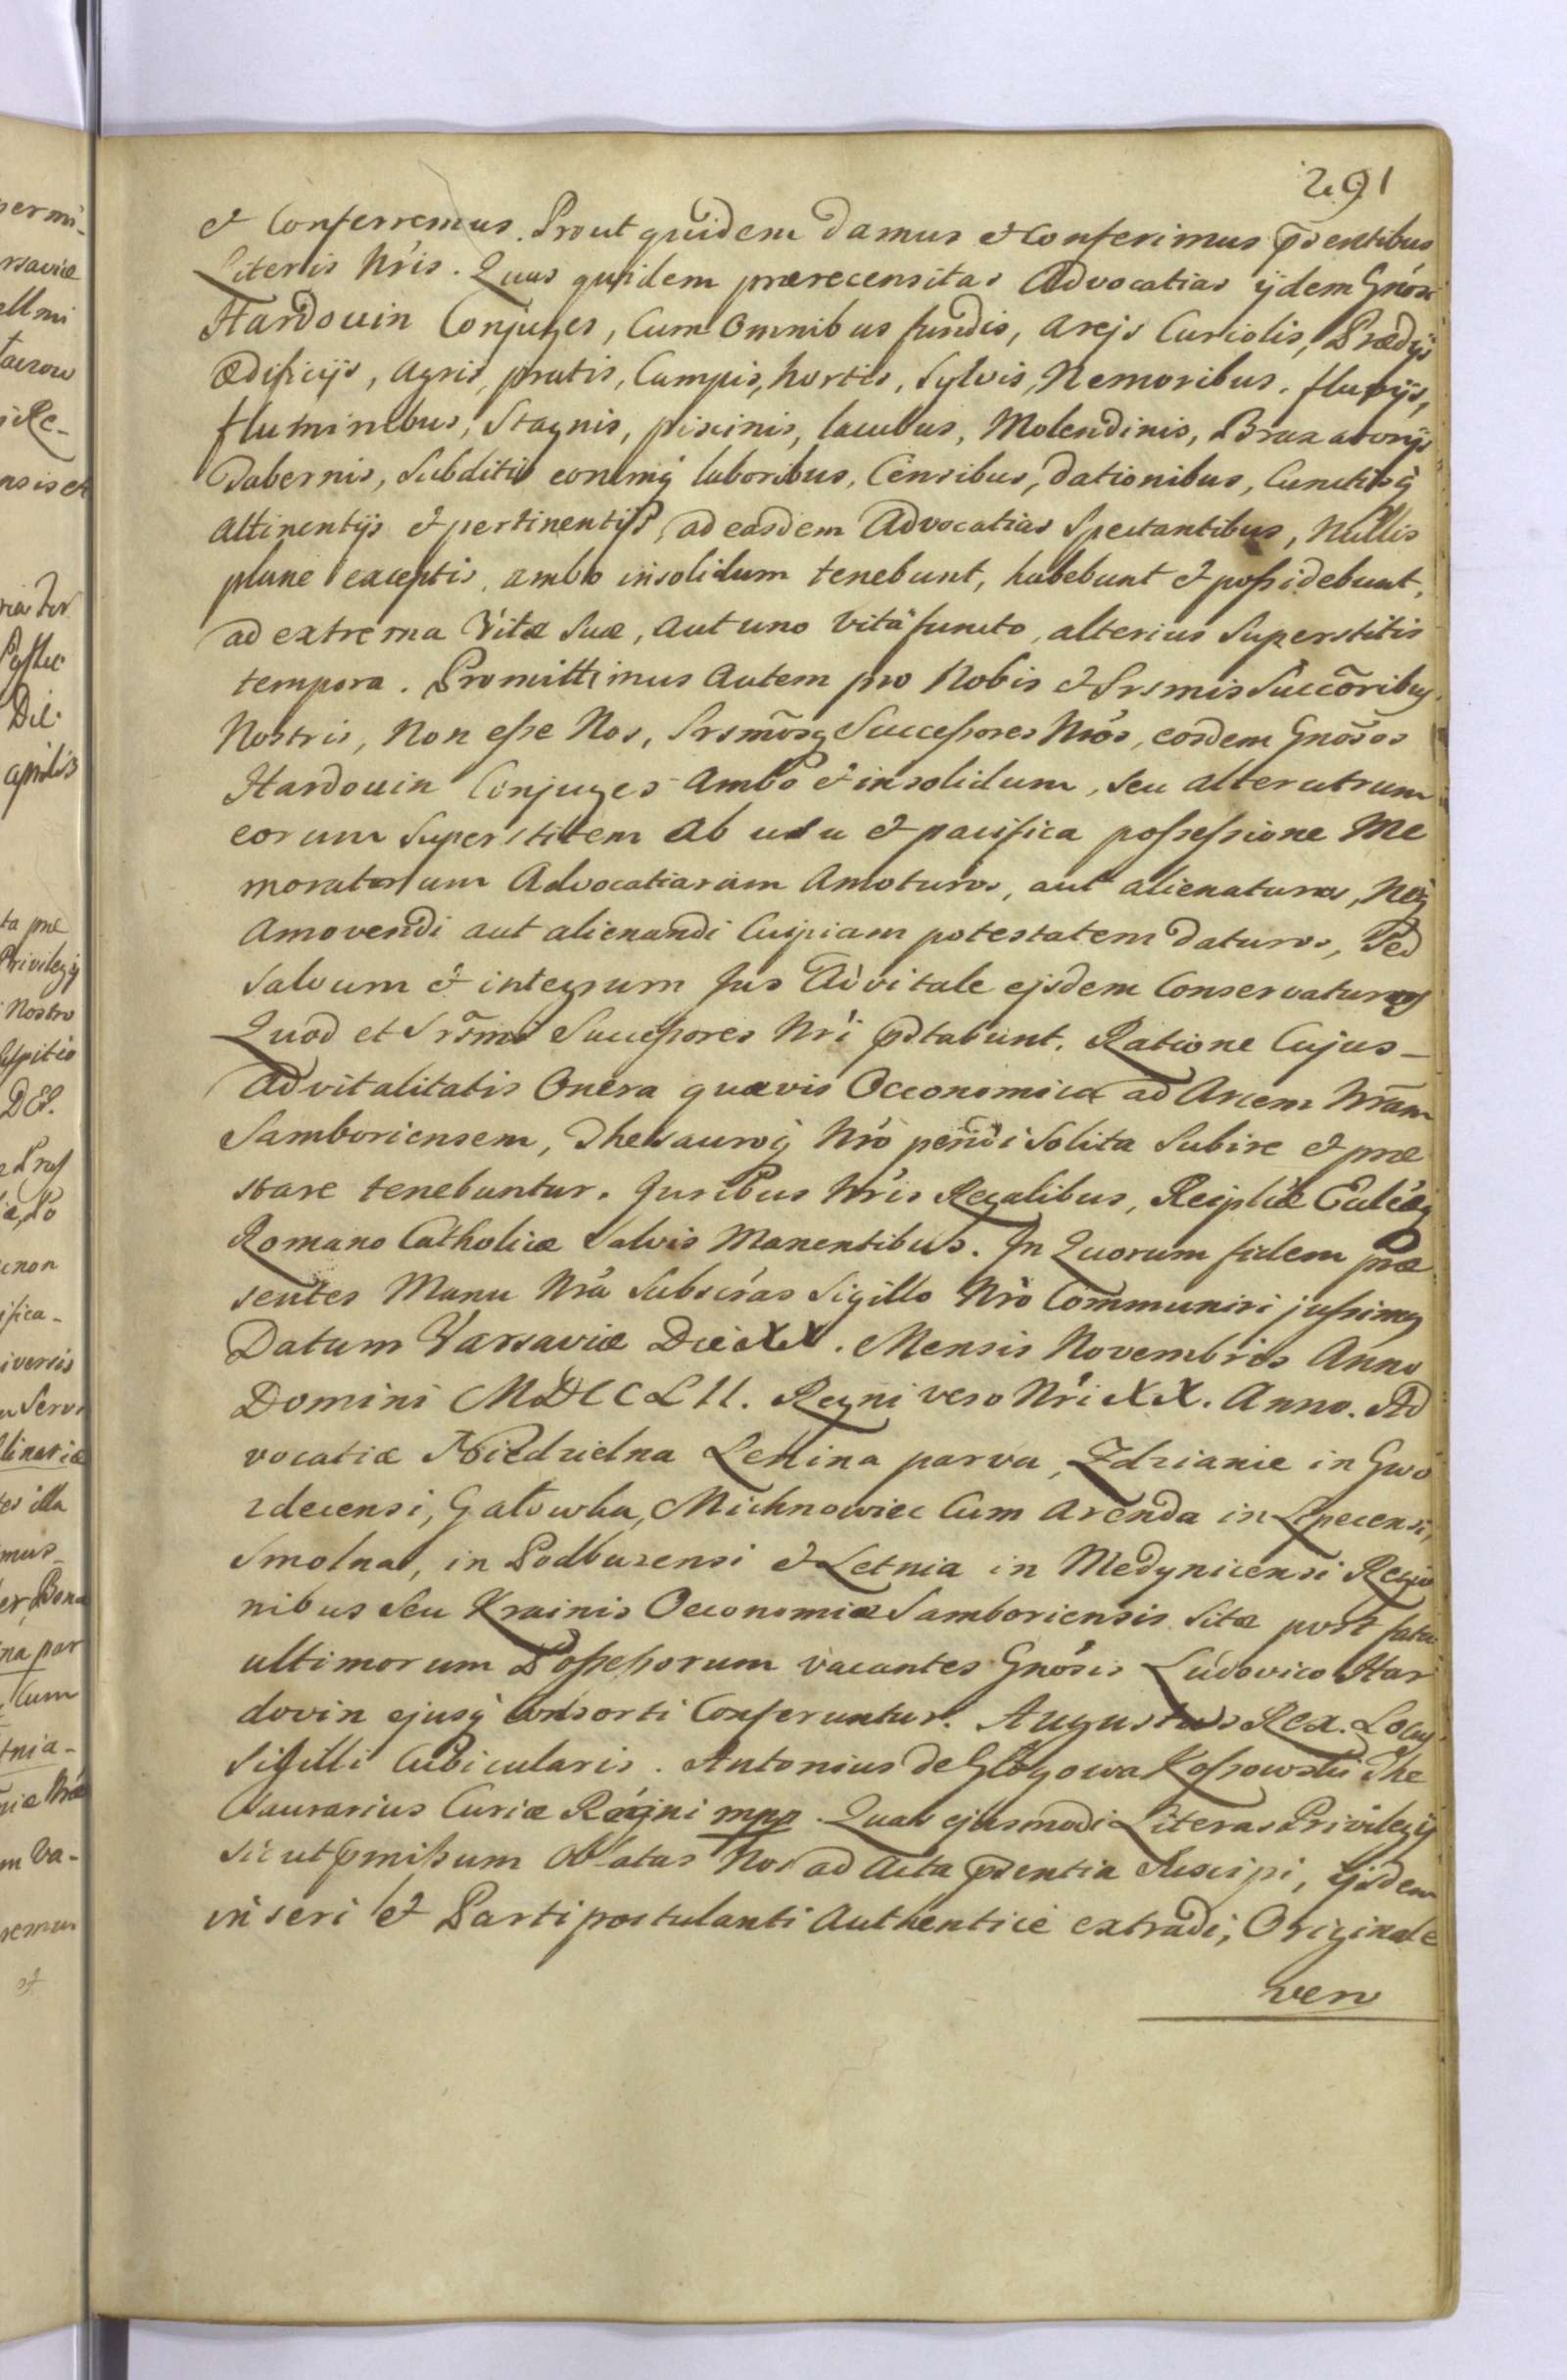 291
et Conferremus. Prout quidem damus et Conferimus p̄sentibus
Literis Nr̃is. Quas quidem prærecensitas Advocatias ijdem Gnõsi
Hardouin Conjuges, Cum Omnibus fundis, arejs Curiolis, Prædijs
Ædificijs, agris, pratis, Campis, hortis, Sylvis, Nemoribus, fluvijs,
fluminibus, Stagnis, piscinis, lacubus, Molendinis, Braxatorijs
Tabernis, Subditis eorumq́ laboribus, Censibus, dationibus, Cunctisq́
attinentijs et pertinentijs, ad easdem Advocatias Spectantibus, Nullis
plane exceptis, ambo insolidum tenebunt, habebunt et poßidebunt,
ad extrema Vitæ Suæ, aut uno vitâ functo, alterius Superstitis
tempora. Promittimus Autem pro Nobis et Srsmis Succõribus
Nostris, Non eße Nos, Srsmõsq Succeßores Nr̃os, eosdem Gnõsos
Hardouin Conjuges Ambo et insolidum, Seu alterutrum
eorum Superstitem Ab usu et pacifica poßeßione Me
moratarum Advocatiarum Amoturos, aut alienaturos, Neq́
Amovendi aut alienandi Cuipiam potestatem Daturos, Sed
Salvum et integrum Jus Advitale ejsdem Conservaturos
Quod et Srsmi Succeßores Nr̃i p̄stabunt. Ratione Cujus
Advitalitatis Onera quævis Oeconomica ad Arcem Nr̃am
Samboriensem, Thesauroq́ Nr̃o pendi Solita Subire et præ
stare tenebuntur. Juribus Nr̃is Regalibus, Reiplicæ Eccleæq́
Romano Catholicæ Salvis Manentibus. In Quorum fidem præ
sentes Manu Nr̃a Subscr̃as Sigillo Nr̃o Communiri jußimus
Datum Varsaviæ Die XX. Mensis Novembris Anno
Domini MDCCLII. Regni vero Nr̃i XX. Anno. Ad
vocatiæ Niedzielna Lenina parva, Zdzianie in Gwo
zdecensi, Gałowka, Michnowiec Cum Arenda in Lipecensi,
Smolna, in Podbuzensi et Letnia in Medynicensi Regio
nibus Seu Krainis Oeconomiæ Samboriensis Sitæ post fata
ultimorum Poßeßorum vacantes Gnõsis Ludovico Har
dovin ejusq́ Consorti Conferuntur. Augustus Rex. Locus
Sigilli Cubicularis. Antonius de Głogowa Koßowski The
saurarius Curiæ Regni mpp. Quas ejusmodi Literas Privilegij
Sicut p̄mißum Oblatas Nos ad Acta p̄sentia Suscipi, ijsdem
inseri et Parti postulanti Authenticè extradi, Originale
vero